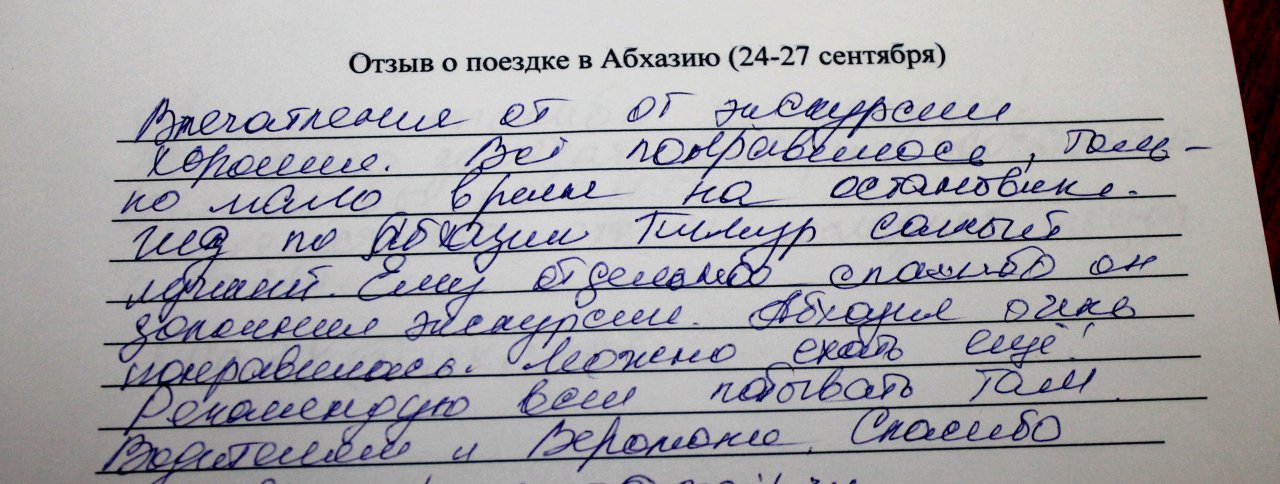 Отзыв о поездке в Абхазию (24-27 сентября)
Впечатление от от экскурсии
хорошие. Всё понравилось, толь-
ко мало время на остановки.
Гид по Абхазии Тимур самый
лучший. Ему отдельно спасибо он
дополнил экскурсии. Абхазия очень
понравилась. Можно ехать ещё!
Рекомендую всем побывать там.
Водителям и Спасибо